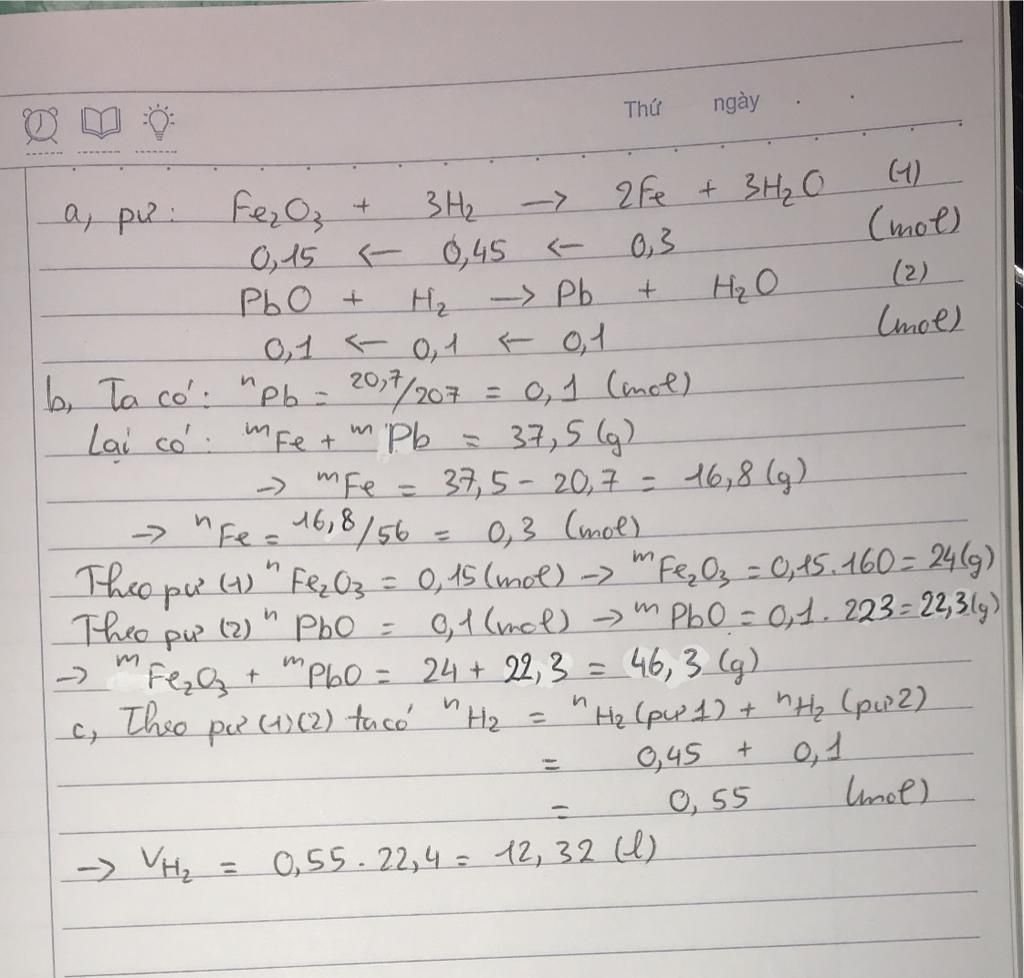 Thứ ngày
a, pư: Fe₂O₃ + 3H₂ → 2Fe + 3H₂O (1)
0,15 ← 0,45 ← 0,3 (mol)
PbO + H₂ → Pb + H₂O (2)
0,1 ← 0,1 ← 0,1 (mol)
b, Ta có: nPb = 20,7/207 = 0,1 (mol)
Lại có: mFe + mPb = 37,5 (g)
→ mFe = 37,5 - 20,7 = 16,8 (g)
→ nFe = 16,8/56 = 0,3 (mol)
Theo pư (1) nFe₂O₃ = 0,15 (mol) → mFe₂O₃ = 0,15.160 = 24(g)
Theo pư (2) nPbO = 0,1 (mol) → mPbO = 0,1.223 = 22,3(g)
→ mFe₂O₃ + mPbO = 24 + 22,3 = 46,3 (g)
c, Theo pư (1)(2) ta có nH₂ = nH₂ (pư 1) + nH₂ (pư 2)
= 0,45 + 0,1
= 0,55 (mol)
→ VH₂ = 0,55.22,4 = 12,32 (l)